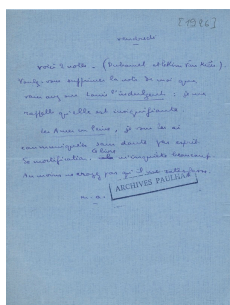 [1936]
vendredi
voici 2 notes. (Duhamel et
Voulez-vous supprimer la note de moi que
vous avez sur Louis l'indulgent : je me
rappelle qu'elle est insignifiante.
Les Ames en peine, je vous les ai
communiquées sans doute par esprit
de mortification. Ce livre m'inquiète beaucoup.
Au moins ne croyez pas qu'il me satisfasse.
m. a.
ARCHIVES PAULHAN